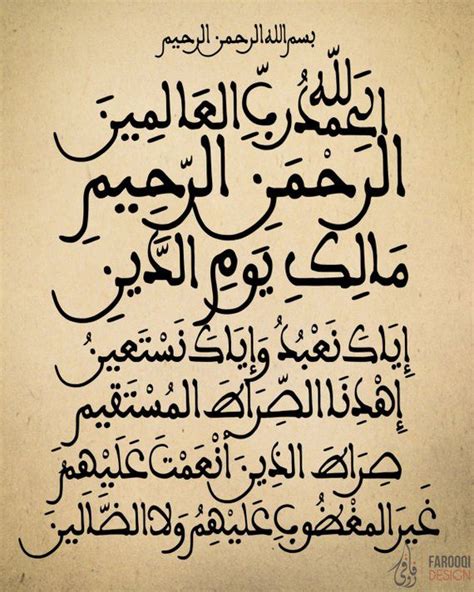 بسم الله الرحمن الرحيم
الحمد لله رب العالمين
الرحمن الرحيم
مالك يوم الدين
إياك نعبد وإياك نستعين
إهدنا الصراط المستقيم
صراط الذين أنعمت عليهم
غير المغضوب عليهم ولا الضالين
فاروقي
FAROOQI
DESIGN